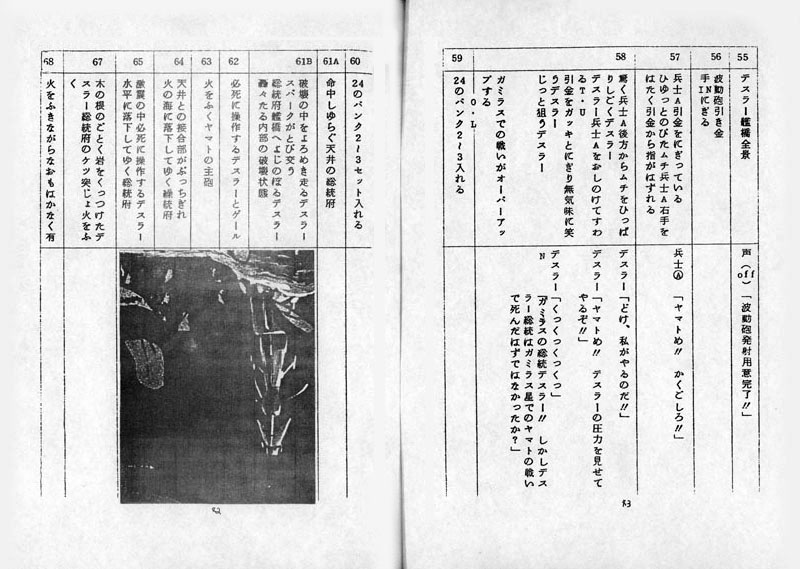 55
デスラー艦橋全景
声(off)「波動砲発射用意完了!!」
56
波動砲引き金
手INにぎる
57
兵士A引金をにぎっている
ひゆっとのびたムチ兵士A右手を
はたく引金から指がはずれる
兵士Ⓐ 「ヤマトめ!! かくごしろ!!」
58
驚く兵士A後方からムチをひっぱ
りしごくデスラー
デスラー兵士Aをおしのけてすわ
るT・U
引金をガッキとにぎり無気味に笑
うデスラー
じっと狙うデスラー
デスラー「どけ、私がやるのだ!!」
デスラー「ヤマトめ!! デスラーの圧力を見せて
やるぞ!!」
デスラー「くっくっくっくっ」
N 「ガミラスの総統デスラー!! しかしデス
ラー総統はガミラス星でのヤマトの戦い
で死んだはずではなかったか?」
ガミラスでの戦いがオーバーアッ
プする
―O・L―
59
24のバンク2~3入れる
83
60
24のバンク2~3セット入れる
61A
命中しゆらぐ天井の総統府
61B
破壊の中をよろめき走るデスラー
スパークがとび交う
総統府艦橋へよじのぼるデスラー
轟々たる内部の破壊状態
62
必死に操作するデスラーとゲール
63
火をふくヤマトの主砲
64
天井との接合部がぶっちぎれ
火の海に落下してゆく総統府
65
激震の中必死に操作するデスラー
水平に落下してゆく総統府
67
木の根のごとく岩をくっつけたデ
スラー総統府のケツ突じょ火をふ
く
68
火をふきながらなおもはかなく有
82